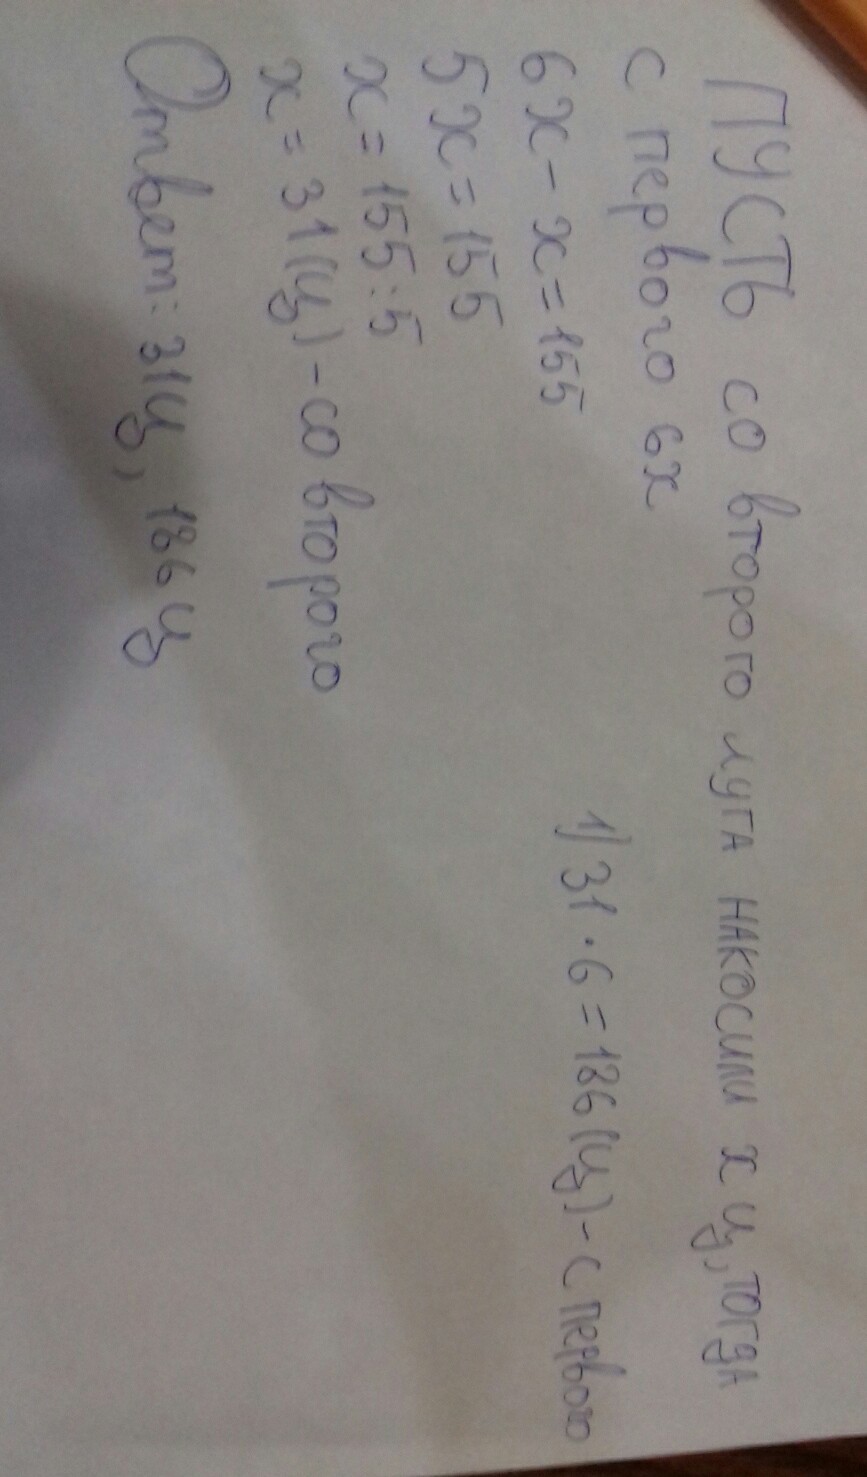 ПУСТЬ со второго луга накосили x ц, тогда
с первого 6x
6x - x = 155
5x = 155
x = 155 : 5
x = 31 (ц) - со второго
1) 31 · 6 = 186 (ц) - с первого
Ответ: 31ц, 186 ц